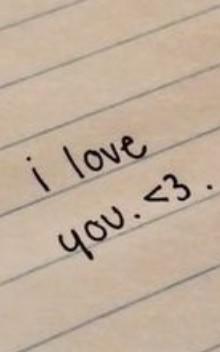 i love
you. <3 .